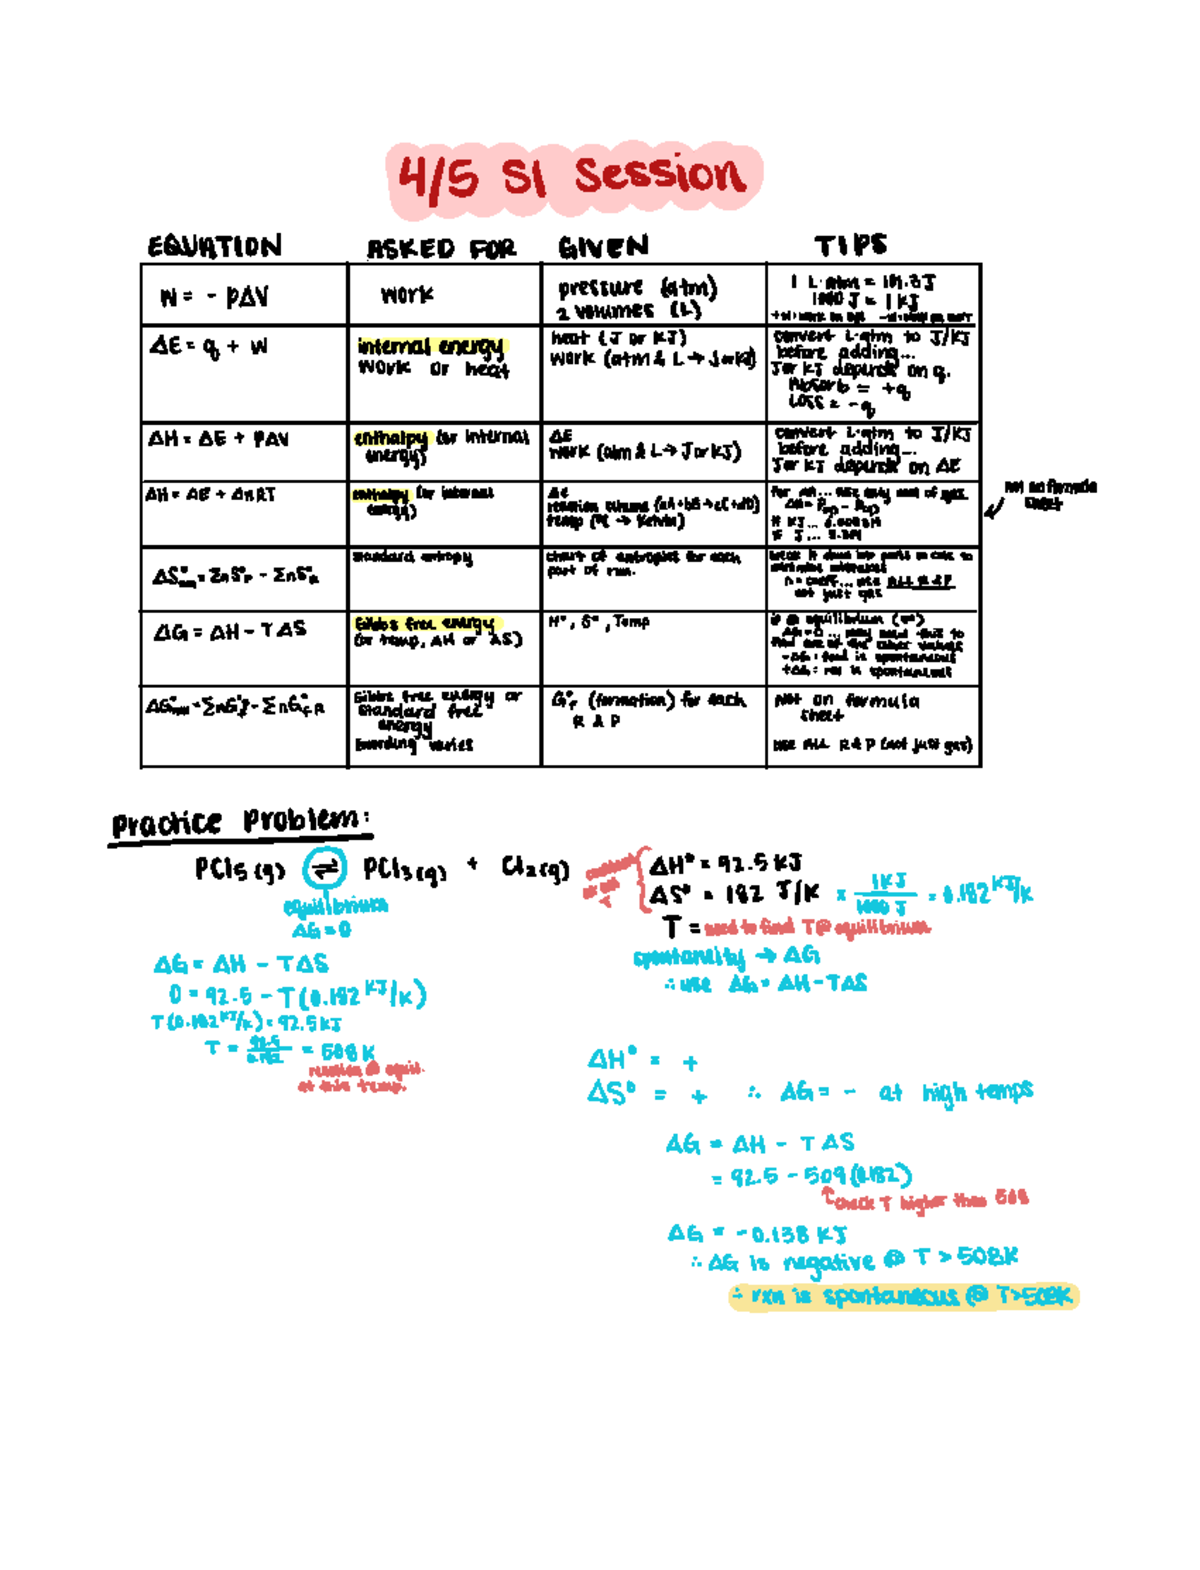 4/5 SI Session
EQUATION ASKED FOR GIVEN TIPS
W = - PΔV
work
pressure (atm)
2 volumes (L)
1 L·atm = 101.3 J
1000 J = 1 KJ
ΔE = q + W
internal energy
work or heat
heat (J or KJ)
work (atm & L → J or KJ)
convert L·atm to J/KJ
before adding...
J or KJ depends on q.
Absorb = +q
Loss = -q
ΔH = ΔE + PΔV
enthalpy (or internal
energy)
ΔE
work (atm & L → J or KJ)
convert L·atm to J/KJ
before adding...
J or KJ depends on ΔE
ΔH = ΔE + ΔnRT
enthalpy (or internal
energy)
ΔE
reaction scheme (aA+bB→cC+dD)
temp (°C → Kelvin)
for Δn... use only mol of gas
if KJ...
if J...
not on formula
sheet
ΔS°rxn = ΣnS°P - ΣnS°R
standard entropy
chart of entropies for each
part of rxn.
break it down into parts in calc to
minimize mistakes
n = coeff... use ALL R & P
not just gas
ΔG = ΔH - TΔS
Gibbs free energy
(or temp, ΔH or ΔS)
H°, S°, Temp
if @ equilibrium (⇌)
ΔG = 0 ... may need this to
find one of the other values
-ΔG: rxn is spontaneous
+ΔG: rxn is spontaneous
ΔG°rxn = ΣnG°f P - ΣnG°f R
Gibbs free energy or
standard free
energy
wording varies
G°f (formation) for each
R & P
Not on formula
sheet
use ALL R & P (not just gas)
Practice Problem:
PCl5(g) ⇌ PCl3(g) + Cl2(g)
equilibrium
ΔG = 0
ΔH° = 92.5 KJ
ΔS° = 182 J/K × 1KJ/1000 J = 0.182 KJ/K
T = need to find T @ equilibrium
spontaneity → ΔG
∴ use ΔG = ΔH - TΔS
ΔG = ΔH - TΔS
0 = 92.5 - T(0.182 KJ/K)
T(0.182 KJ/K) = 92.5 KJ
T = 92.5/0.182 = 508 K
reaction @ equil.
at this temp.
ΔH° = +
ΔS° = + ∴ ΔG = - at high temps
ΔG = ΔH - TΔS
= 92.5 - 509(0.182)
↑check T higher than 508
ΔG = -0.138 KJ
∴ ΔG is negative @ T > 508K
∴ rxn is spontaneous @ T>508K